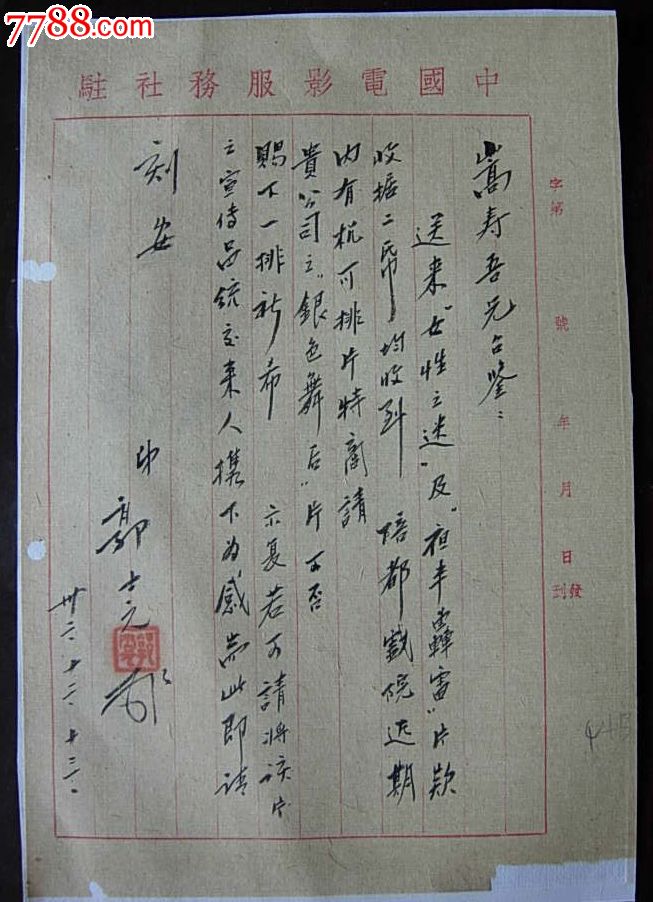 7788.com
中國電影服務社駐
字第 號 年 月 日 發 到
嵩寿吾兄台鉴：
送来“女性之迷”及“夜半轟雷”片款
收据二帋均收到 陪都戲院近期
内有杭可排片特商請
貴公司之“銀色舞后”片可否
賜下一排祈希 示复若可請将该片
之宣传品統交来人携下为感耑此即请
刻安
弟 郭士元
卅六、十二、十三、